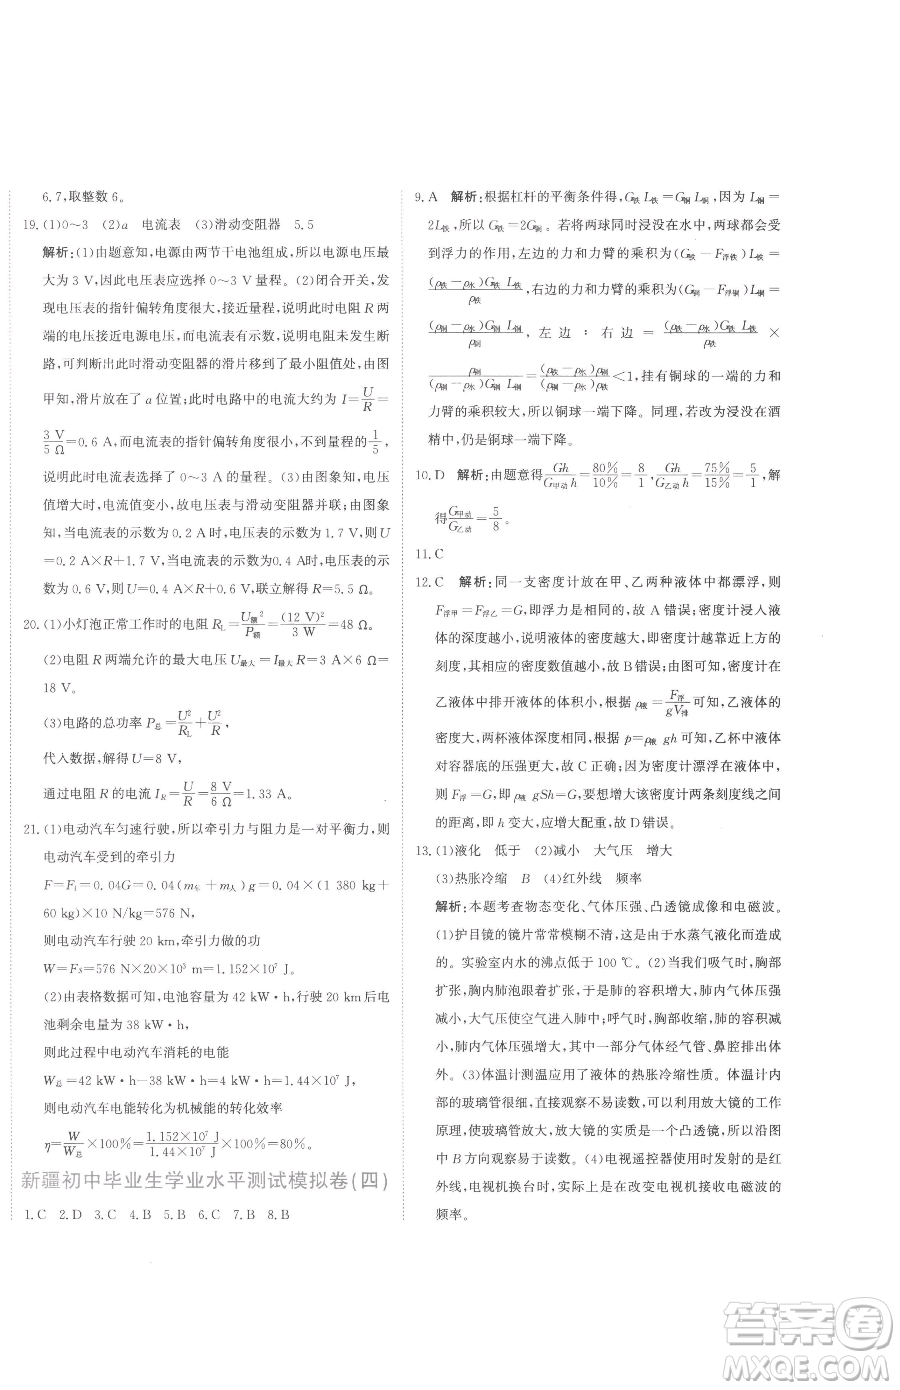 6.7,取整数6。
19.(1)0～3 (2)a 电流表 (3)滑动变阻器 5.5
解析:(1)由题意知,电源由两节干电池组成,所以电源电压最
大为3 V,因此电压表应选择0～3 V的量程。(2)闭合开关,发
现电压表的指针偏转角度很大,接近量程,说明此时电阻R两
端的电压接近电源电压,而电流表有示数,电阻未发生断
路,可判断出此时滑动变阻器的滑片移到了最大阻值处,由图
甲知,滑片放在了a位置;此时电路中的电流大约为I=U/R=
3 V/5 Ω=0.6 A,而电流表的指针偏转角度很小,不到量程的1/5,
说明此时电流表选择0～3 A的量程。(3)由图象知,电压
值增大时,电流值变小,故电压表与滑动变阻器并联;由图
象知,当电流表的示数为0.2 A时,电压表示数为1.7 V,则U
=0.2 A×R+1.7 V,当电流表的示数为0.4 A时,电压表的示
数为0.6 V,则U=0.4 A×R+0.6 V,联立解得R=5.5 Ω。
20.(1)小灯泡正常工作时的电阻R_L=U额²/P额=(12 V)²/3 W=48 Ω。
(2)电阻R两端允许的最大电压U最大=I最大R=3 A×6 Ω=
18 V。
(3)电路的总功率P总=U²/R_L+U²/R,
代入数据,解得U=8 V,
通过电阻R的电流I_R=U/R=8 V/6 Ω=1.33 A。
21.(1)电动汽车匀速行驶,所以牵引力与阻力是一对平衡力,则
电动汽车受到的牵引力
F=F_f=0.04G=0.04(m车+m人)g=0.04×(1 380 kg+
60 kg)×10 N/kg=576 N,
则电动汽车行驶20 km,牵引力做的功
W=Fs=576 N×20×10³ m=1.152×10⁷ J。
(2)由表格数据可知,电池容量为42 kW·h,行驶20 km后电
池剩余电量为38 kW·h,
则此过程中电动汽车消耗的电能
W总=42 kW·h-38 kW·h=4 kW·h=1.44×10⁷ J,
则电动汽车电能转化为机械能的转化效率
η=W/W总×100%=1.152×10⁷ J/1.44×10⁷ J×100%=80%。
新疆初中毕业生学业水平测试模拟卷(四)
1.C 2.D 3.C 4.B 5.B 6.C 7.B 8.B
9.A 解析:根据杠杆的平衡条件得,G铁L铁=G铜L铜,因为L铜=
2L铁,所以G铁=2G铜。若将两球同时浸没在水中,两球都会
受到浮力的作用,左边的力和力臂的乘积为(G铁-F浮铁)L铁=
(ρ铁-ρ水)G铁L铁/ρ铁,右边的力和力臂的乘积为(G铜-F浮铜)L铜=
(ρ铜-ρ水)G铜L铜/ρ铜,左边:右边=(ρ铁-ρ水)G铁L铁/ρ铁×
ρ铜/(ρ铜-ρ水)G铜L铜=(ρ铁-ρ水)ρ铜/(ρ铜-ρ水)ρ铁<1,挂有铜球的一端的力和
力臂的乘积较大,所以铜球一端下降。同理,若改为浸没在酒
精中,仍是铜球一端下降。
10.D 解析:由题意得Gh/G甲动h=80%/10%=8/1,Gh/G乙动h=75%/15%=5/1,解
得G甲动/G乙动=5/8。
11.C
12.C 解析:同一支密度计放在甲、乙两种液体中都漂浮,则
F浮甲=F浮乙=G,即浮力是相同的,故A错误;密度计浸入液
体的深度越小,说明液体的密度越大,即密度计越靠近下面的
刻度,其对应的密度数值越小,故B错误;由图可知,密度计在
乙液体中排开液体的体积小,根据ρ液=F浮/gV排可知,乙液体的密
度大,两杯液体深度相同,根据p=ρ液gh可知,乙杯中液体
对容器底的压强更大,故C正确;因为密度计漂浮在液体中,
则F浮=G,即ρ液gSh=G,要想增大该密度计两条刻度线之间
的距离,即h变大,应增大配重,故D错误。
13.(1)液化 低于 (2)减小 大气压 增大
(3)热胀冷缩 B (4)红外线 频率
解析:本题考查物态变化、气体压强、凸透镜成像和电磁波。
(1)护目镜的镜片常常模糊不清,这是由于水蒸气液化而形成
的。实验室内水的沸点低于100 ℃。(2)吸气时,胸部
扩张,胸内肺泡跟着扩张,于是肺的容积增大,肺内气体压强
减小,大气压使气体进入肺中;呼气时,胸部缩小,肺泡跟着收
缩,于是肺的容积减小,肺内气体压强增大,大于体外的大气
压强,肺内一部分气体经气管、鼻腔呼出体
外。(3)体温计测温应用了液体的热胀冷缩性质。体温计中
的玻璃管很细,直接观察不易读数,可以利用放大镜的工作
原理,把体温计的玻璃外壳设计成凸形,便于读数,所以沿图
中B方向观察能看到放大的示数。(4)电视遥控器使用的是红
外线,电视机换台时,实际上是在改变电视机接收电磁波的
频率。
答案圈
MXQE.COM